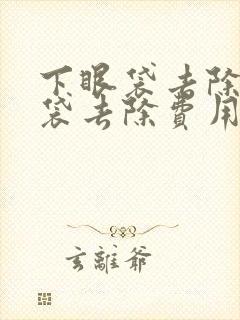 下眼袋去除
袋去除費用
玄離爺